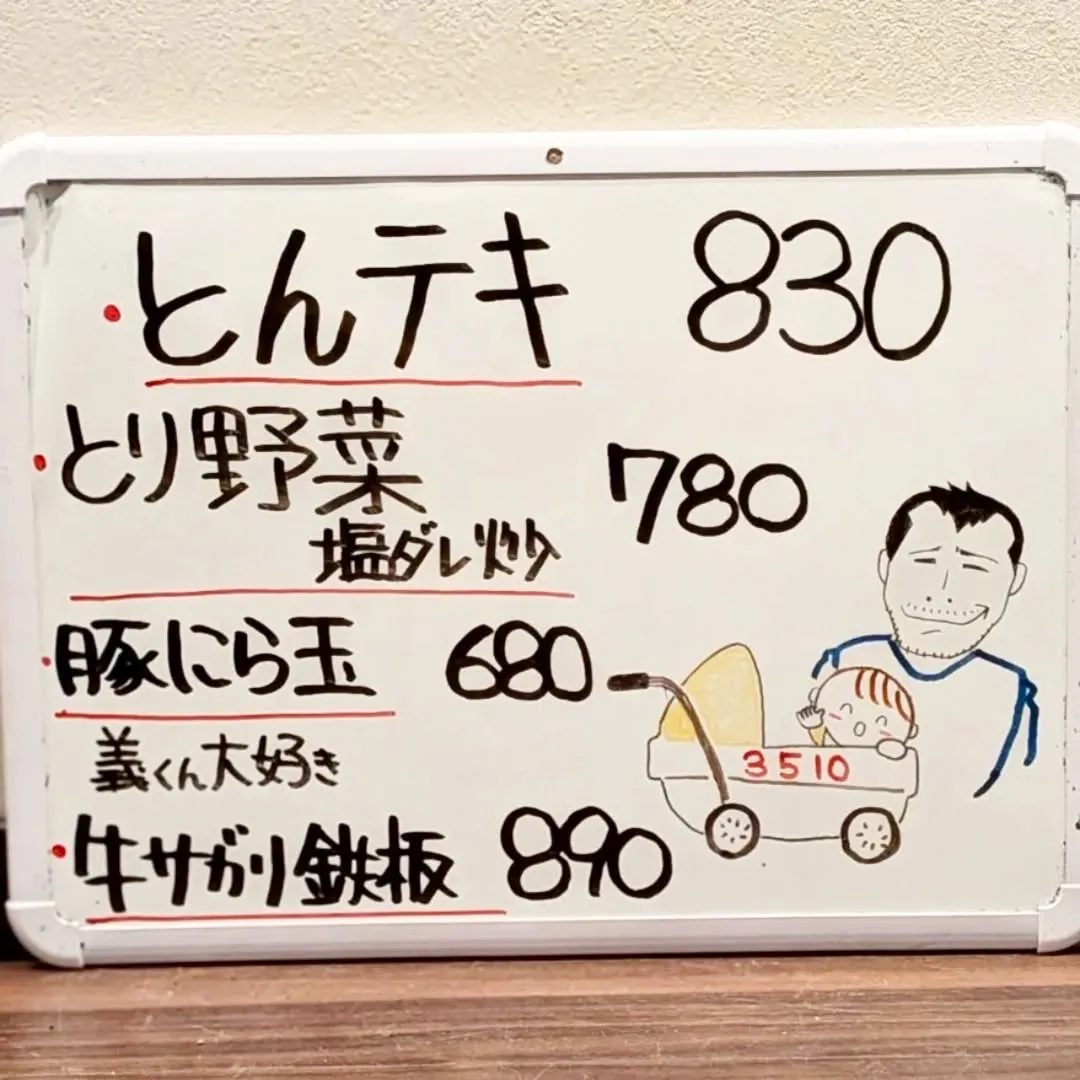 ・とんテキ 830
・とり野菜 780
塩ダレ炒
・豚にら玉 680
義くん大好き
・牛サガリ鉄板 890
3510